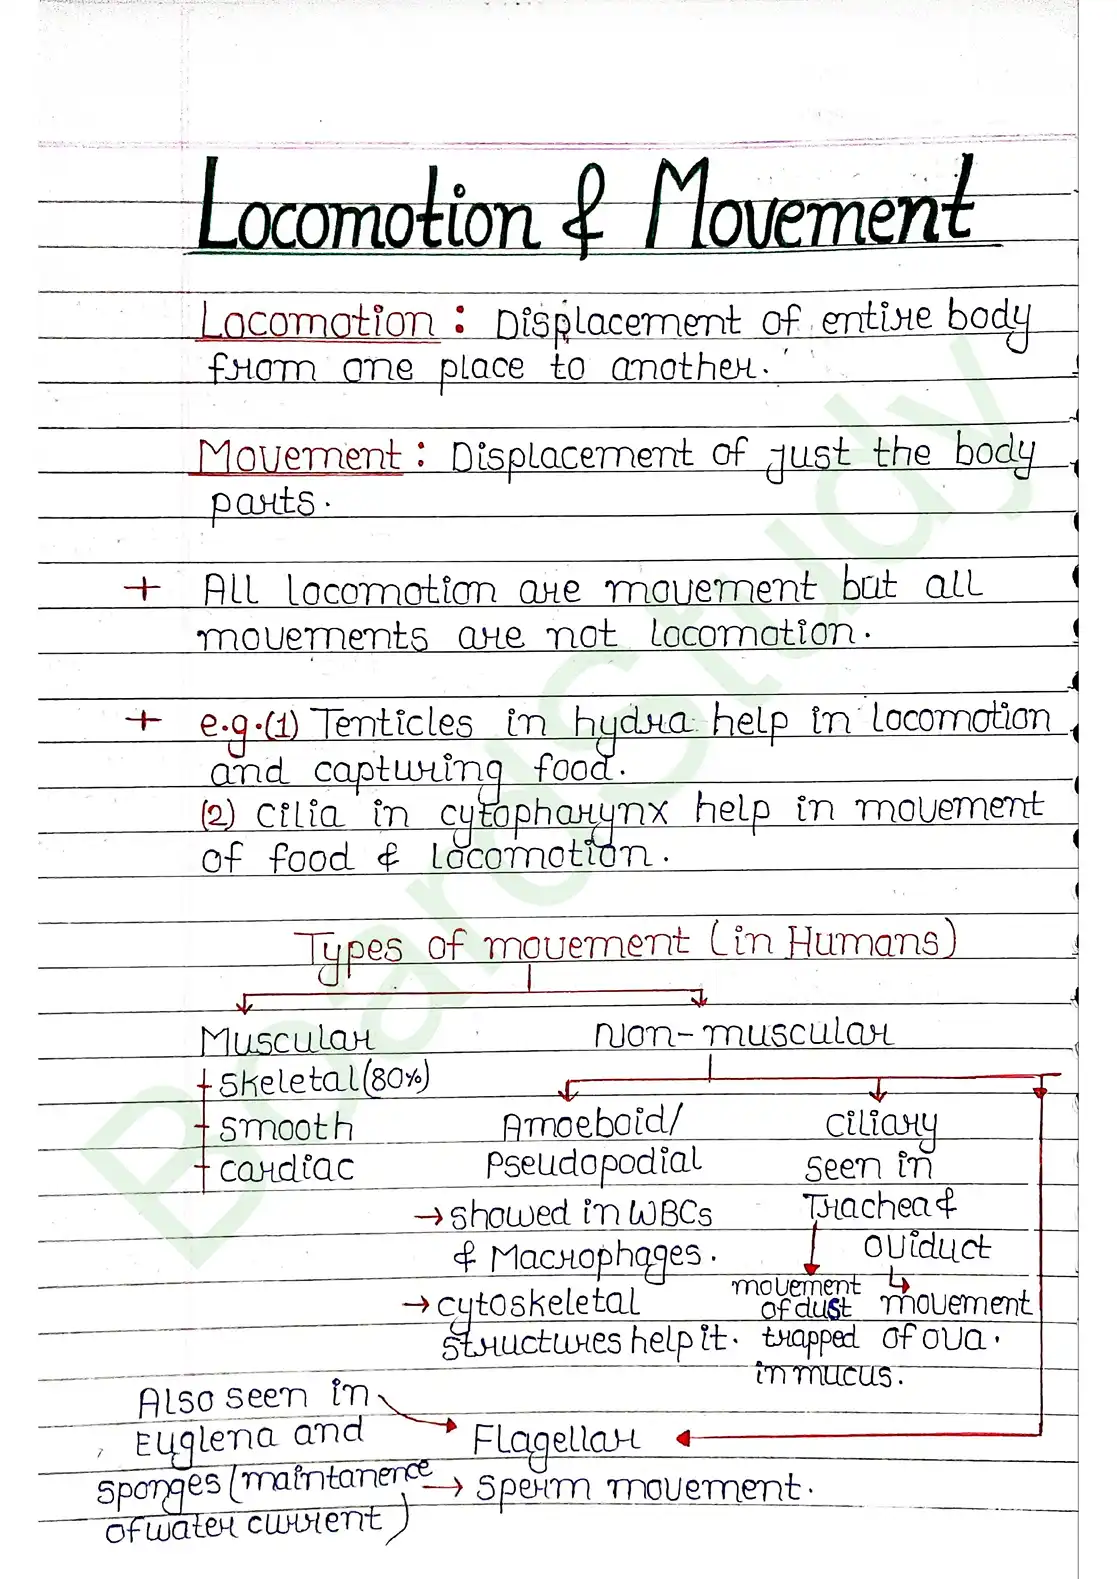 Locomotion & Movement
Locomotion : Displacement of entire body
from one place to another.
Movement : Displacement of just the body
parts.
+ All locomotion are movement but all
movements are not locomotion.
+ e.g.(1) Tenticles in hydra help in locomotion
and capturing food.
(2) cilia in cytopharynx help in movement
of food & locomotion.
Types of movement (in Humans)
Muscular
Skeletal (80%)
smooth
cardiac
Non-muscular
Amoeboid/
Pseudopodial
→ showed in WBCs
& Macrophages.
→ cytoskeletal
structures help it.
ciliary
seen in
Trachea &
oviduct
movement
of dust
trapped
in mucus.
movement
of ova.
Flagellar
→ sperm movement.
Also seen in
Euglena and
sponges (maintanence
of water current)
BoardStudy